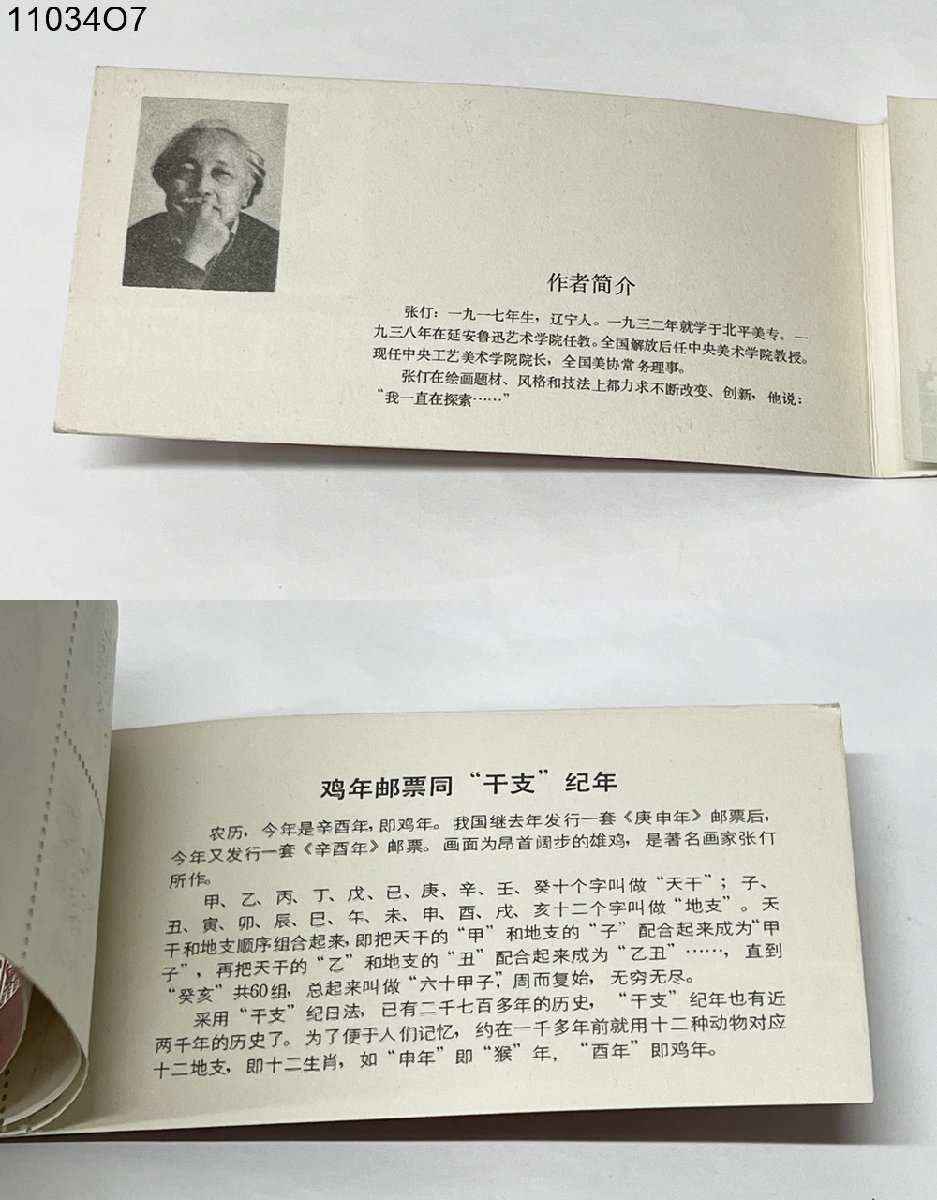 11034O7
作者简介
张仃：一九一七年生，辽宁人。一九三二年就学于北平美专。一
九三八年在延安鲁迅艺术学院任教。全国解放后任中央美术学院教授。
现任中央工艺美术学院院长，全国美协常务理事。
张仃在绘画题材、风格和技法上都力求不断改变、创新，他说：
“我一直在探索……”
鸡年邮票同“干支”纪年
农历，今年是辛酉年，即鸡年。我国继去年发行一套《庚申年》邮票后，
今年又发行一套《辛酉年》邮票。画面为昂首阔步的雄鸡，是著名画家张仃
所作。
甲、乙、丙、丁、戊、已、庚、辛、壬、癸十个字叫做“天干”；子、
丑、寅、卯、辰、巳、午、未、申、酉、戌、亥十二个字叫做“地支”。天
干和地支顺序组合起来，即把天干的“甲”和地支的“子”配合起来成为“甲
子”，再把天干的“乙”和地支的“丑”配合起来成为“乙丑”……，直到
“癸亥”共60组，总起来叫做“六十甲子”，周而复始，无穷无尽。
采用“干支”纪日法，已有二千七百多年的历史，“干支”纪年也有近
两千年的历史了。为了便于人们记忆，约在一千多年前就用十二种动物对应
十二地支，即十二生肖，如“申年”即“猴”年，“酉年”即鸡年。